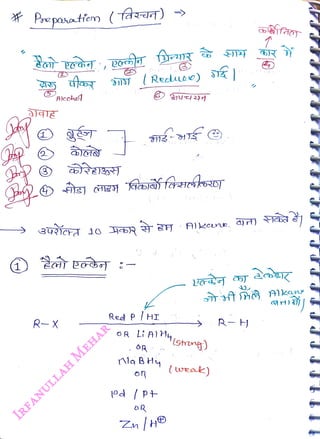 # Preparation (विरचन) →
कार्बोनिल
"हैलो एल्केन, एल्कीन ग्रिन्यार के साथ कार में
① ② ③ ④
दारू पीकर भाग (Reduce) गई।
⑤ Alcohol ⑥ अपचयन
गवाह
① वुर्ट्ज
② कोल्बे
भाई-भाई
③ कोरेहाऊस
④ सोडा लाइम विकार्बोक्सिलीकरण
→ उपरोक्त 10 प्रकार से हम Alkane बना सकते है।
① हैलो एल्केन :-
एल्केन का ठेकेदार
जो भी मिले Alkane
बनाओ।
R-X Red P / HI R-H
OR LiAlH4 (strong)
OR
NaBH4 (weak)
OR
Pd / Pt
OR
Zn / H⊕
IRFANULLAH MEHAR